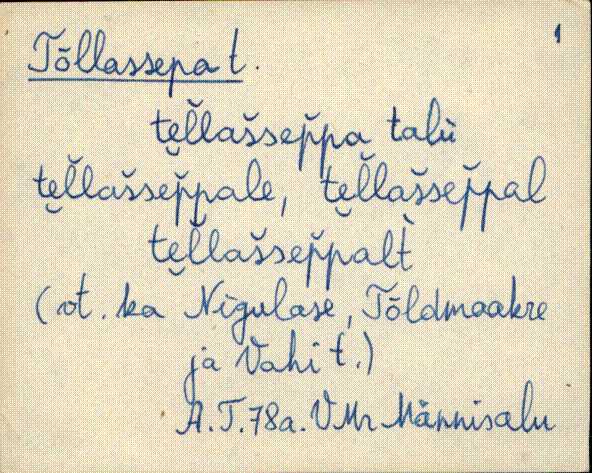 1
Tõllassepa t.
te̮l̆lašsep̆pa talù
te̮l̆lašsep̆pale, te̮l̆lašsep̆pal
te̮l̆lašsep̆palt̀
(vt. ka Nigulase, Tõldmaakre
ja Vahi t.)
A.T.78a. VMr Männisalu